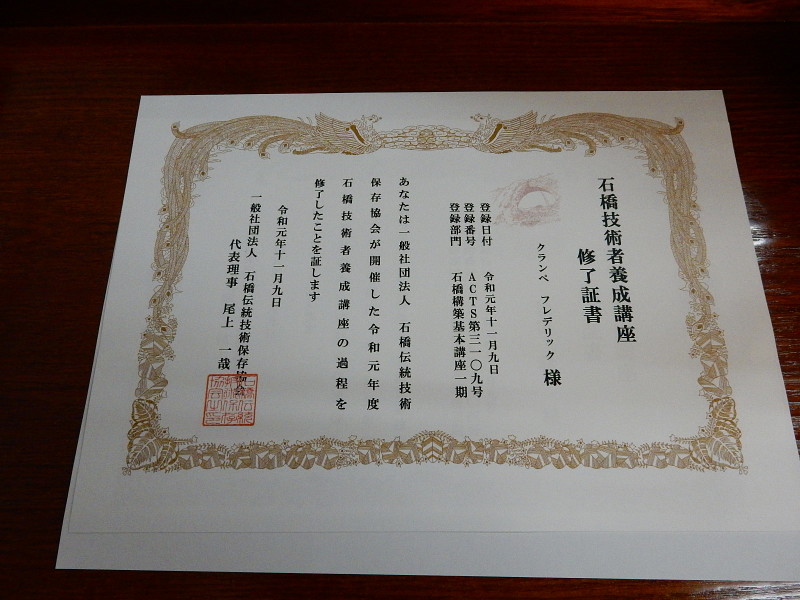 石橋技術者養成講座
修了証書
クランペ フレデリック 様
登録日付 令和元年十一月九日
登録番号 ACTS第三一〇九号
登録部門 石橋構築基本講座一期
あなたは一般社団法人 石橋伝統技術
保存協会が開催した令和元年度
石橋技術者養成講座の過程を
修了したことを証します
令和元年十一月九日
一般社団法人 石橋伝統技術保存協会
代表理事 尾上 一哉